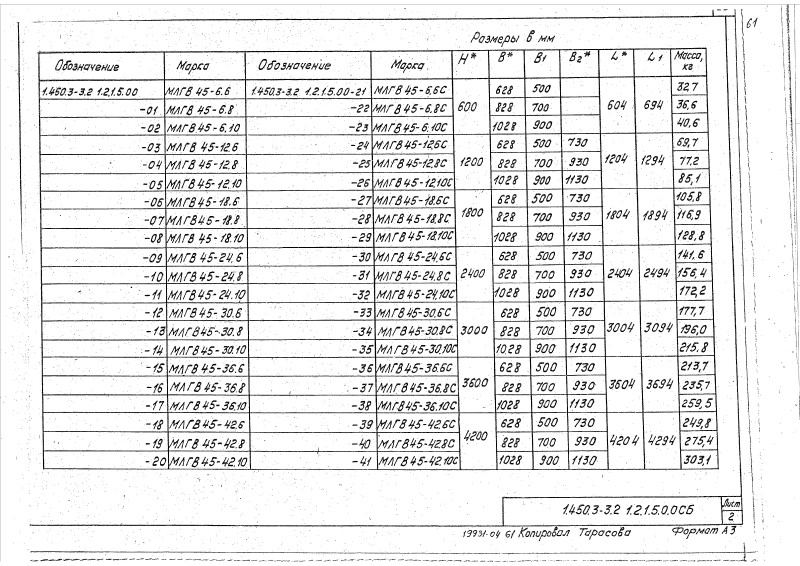 61
Размеры в мм
Обозначение Марка Обозначение Марка H* B* B1 B2* L* L1 Масса, кг
1.450.3-3.2 1.2.1.5.00 МЛГВ 45-6.6 1.450.3-3.2 1.2.1.5.00-21 МЛГВ 45-6.6С 600 628 500 604 694 32,7
-01 МЛГВ 45-6.8 -22 МЛГВ 45-6.8С 828 700 36,6
-02 МЛГВ 45-6.10 -23 МЛГВ 45-6.10С 1028 900 40,6
-03 МЛГВ 45-12.6 -24 МЛГВ 45-12.6С 1200 628 500 730 1204 1294 69,7
-04 МЛГВ 45-12.8 -25 МЛГВ 45-12.8С 828 700 930 77,2
-05 МЛГВ 45-12.10 -26 МЛГВ 45-12.10С 1028 900 1130 85,1
-06 МЛГВ 45-18.6 -27 МЛГВ 45-18.6С 1800 628 500 730 1804 1894 105,8
-07 МЛГВ 45-18.8 -28 МЛГВ 45-18.8С 828 700 930 116,9
-08 МЛГВ 45-18.10 -29 МЛГВ 45-18.10С 1028 900 1130 128,8
-09 МЛГВ 45-24.6 -30 МЛГВ 45-24.6С 2400 628 500 730 2404 2494 141,6
-10 МЛГВ 45-24.8 -31 МЛГВ 45-24.8С 828 700 930 156,4
-11 МЛГВ 45-24.10 -32 МЛГВ 45-24.10С 1028 900 1130 172,2
-12 МЛГВ 45-30.6 -33 МЛГВ 45-30.6С 3000 628 500 730 3004 3094 177,7
-13 МЛГВ 45-30.8 -34 МЛГВ 45-30.8С 828 700 930 196,0
-14 МЛГВ 45-30.10 -35 МЛГВ 45-30.10С 1028 900 1130 215,8
-15 МЛГВ 45-36.6 -36 МЛГВ 45-36.6С 3600 628 500 730 3604 3694 213,7
-16 МЛГВ 45-36.8 -37 МЛГВ 45-36.8С 828 700 930 235,7
-17 МЛГВ 45-36.10 -38 МЛГВ 45-36.10С 1028 900 1130 259,5
-18 МЛГВ 45-42.6 -39 МЛГВ 45-42.6С 4200 628 500 730 4204 4294 249,8
-19 МЛГВ 45-42.8 -40 МЛГВ 45-42.8С 828 700 930 275,4
-20 МЛГВ 45-42.10 -41 МЛГВ 45-42.10С 1028 900 1130 303,1
1.450.3-3.2 1.2.1.5.0.0СБ Лист
2
19931-04 61 Копировал Тарасова Формат А3